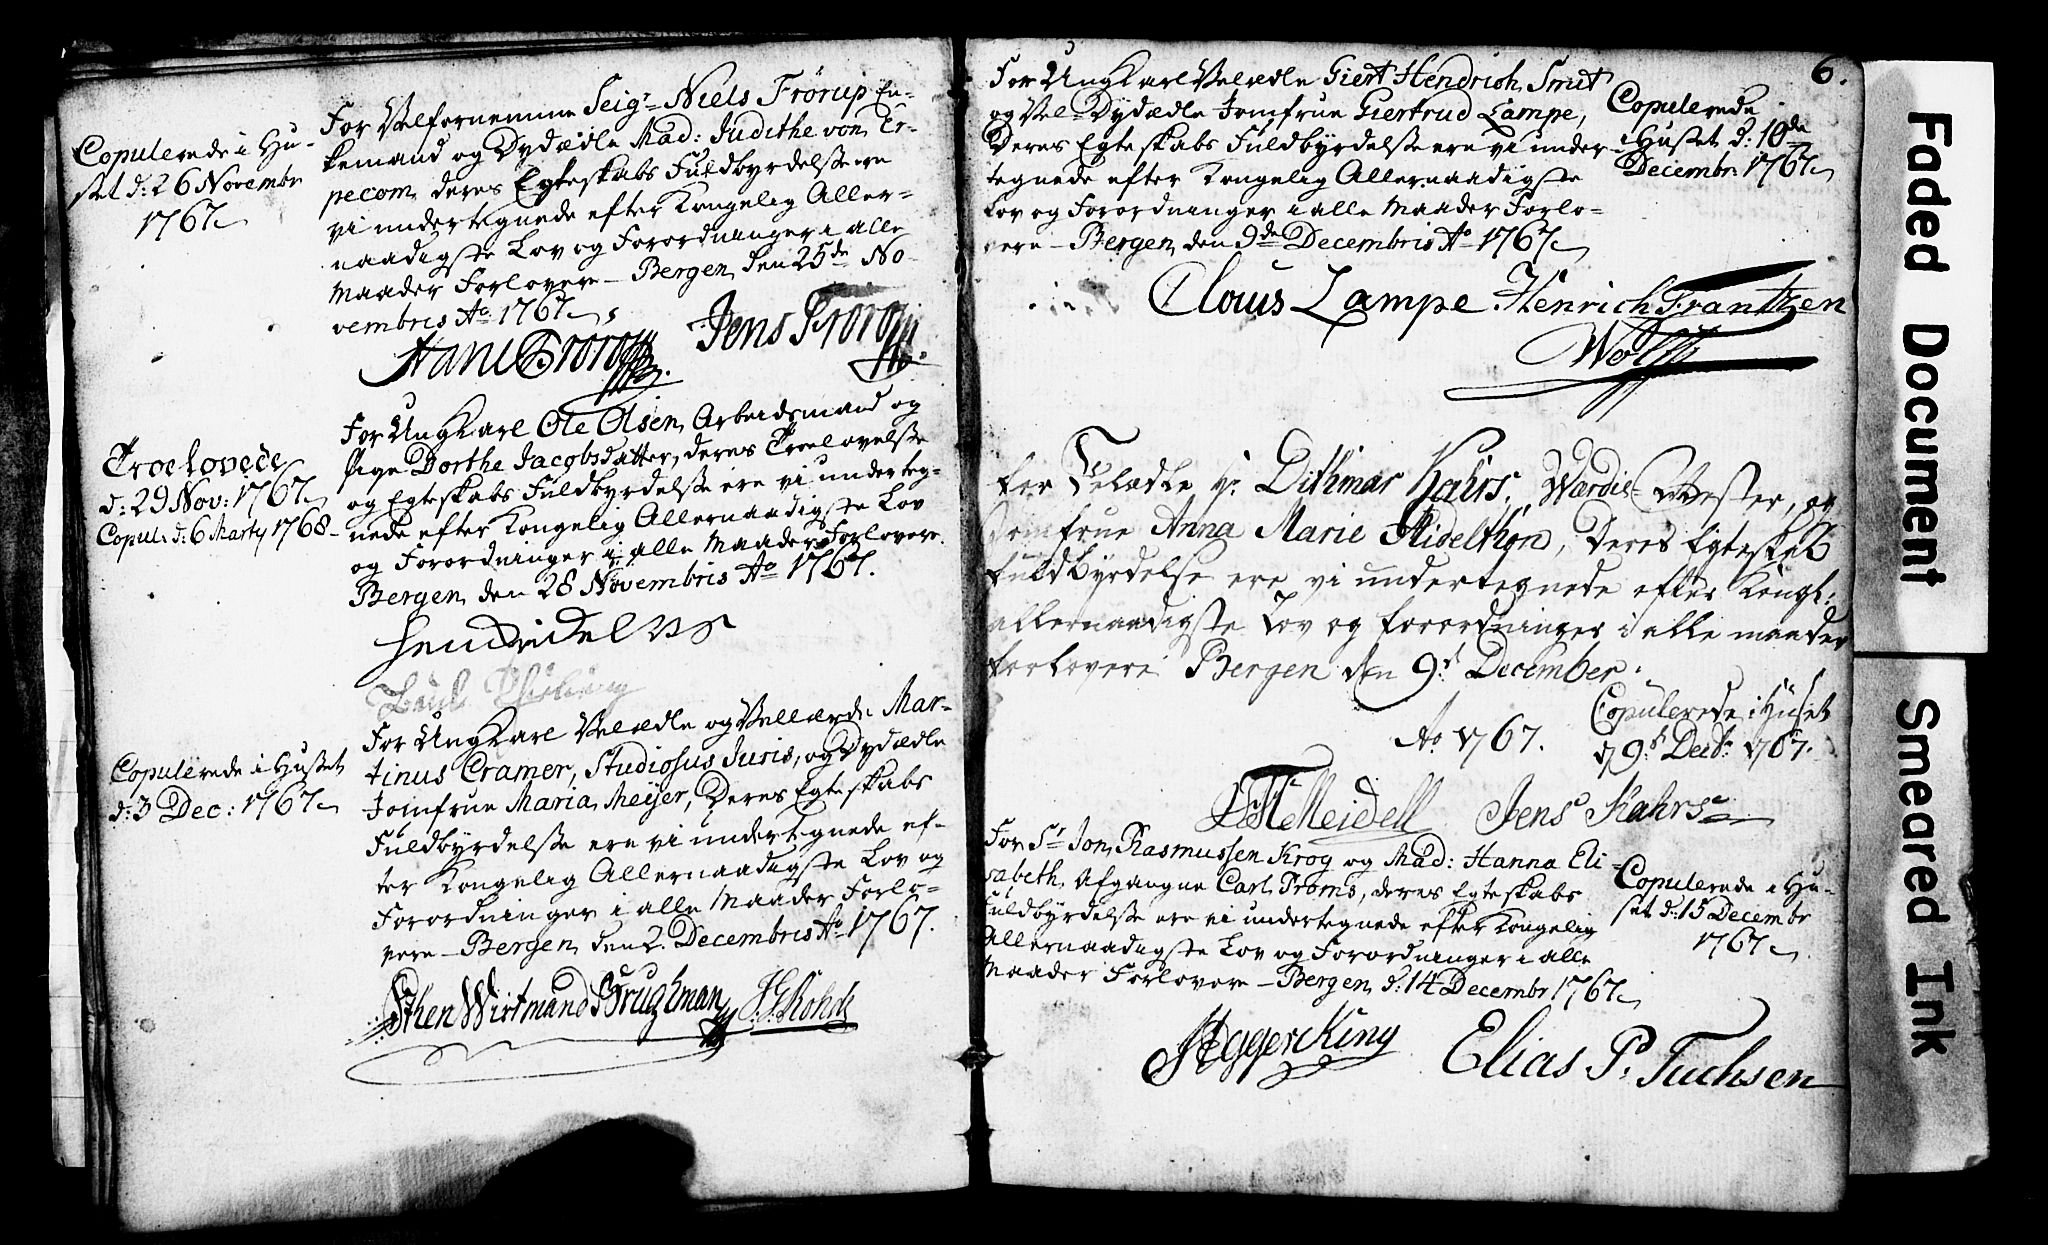 Copulerede i Hu-
set d: 26 Novembr
1767
For Velfornemme Seigr Niels Frörup En-
kemand og Dydædle Mad: Judithe von Er-
pecom, deres Egteskabs Fuldbyrdelsse ere
vi undertegnede efter Kongelig Aller-
naadigste Lov og Forordninger i alle
Maader Forlovere - Bergen, den 25de No-
vembris Ao 1767
Jens Frörop
Troelovede
d: 29 Nov: 1767
Copul: d: 6 Marty 1768
For UngKarl Ole Olsen, Arbeidsmand og
Pige Dorthe Jacobsdatter, deres Troelovelsse
og Egteskabs Fuldbyrdelsse ere vi underteg-
nede efter Kongelig Allernaadigste Lov
og Forordninger i alle Maader Forlovere.
Bergen, den 28 Novembris Ao 1767.
Copulerede i Husset
d: 3 Dec: 1767
For UngKarl Velædle og Vellærde Mar-
tinus Cramer, Studiosus Juris, og Dydædle
Jomfrue Maria Meyer, Deres Egteskabs
Fuldbyrdelsse ere vi undertegnede ef-
ter Kongelig Allernaadigste Lov og
Forordninger i alle Maader Forlo-
vere - Bergen, den 2. Decembris Ao 1767.
Sthen Wirtmand Brughman
6.
For UngKarl Velædle Giert Hendrich Smit
og Vel-Dydædle Jomfrue Giertrud Lampe,
Deres Egteskabs Fuldbyrdelsse ere vi under-
tegnede efter Kongelig Allernaadigste
Lov og Forordninger i alle Maader Forlo-
vere - Bergen, den 9de Decembris Ao 1767
Copulerede
i Husset d: 10de
Decembr: 1767
Claus Lampe Henrich Frantzen
Wolff
For Velædle Hr Dithmar Kahrs, Wærdis-Mester, og
Jomfrue Anna Marie Midelthon, Deres Egteskab
fuldbyrdelse ere vi undertegnede efter Kongl:
allernaadigste Lov og forordninger i alle maader
forlovere Bergen den 9d December
Ao 1767.
Copulerede i Huset
d 9d Decbr 1767.
Meidell Jens Kahrs
For Sr Jon Rasmussen Krog og Mad: Hanna Eli-
sabeth, Afgangne Carl Proms, deres Egteskabs
Fuldbyrdelsse ere vi undertegnede efter Kongelig
Allernaadigste Lov og Forordninger i alle
Maader Forlovere - Bergen, d: 14 Decembr 1767
Copulerede i Hu-
set d: 15 Decembr
1767
Eggerking Elias P. Fuchsen
Faded Document
Smeared Ink